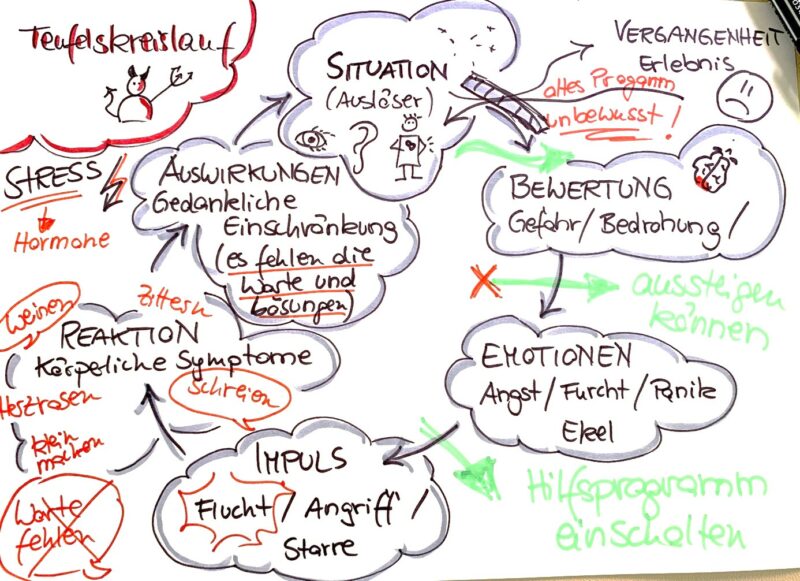 Teufelskreislauf
SITUATION
(Auslöser)
?
VERGANGENHEIT
Erlebnis
altes Programm
unbewusst!
STRESS
Hormone
AUSWIRKUNGEN
Gedankliche
Einschränkung
(es fehlen die
Worte und
Lösungen)
BEWERTUNG
Gefahr/Bedrohung/
aussteigen
können
EMOTIONEN
Angst/Furcht/Panik
Ekel
Hilfsprogramm
einschalten
IMPULS
Flucht/Angriff/
Starre
Zittern
weinen
REAKTION
Körperliche Symptome
schreien
Herzrasen
klein
machen
Worte
fehlen